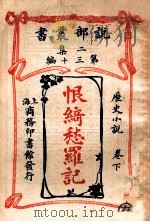 說部叢書
第二集
第十三編
歷史小說 卷下
恨綺愁羅記
上海商務印書館發行